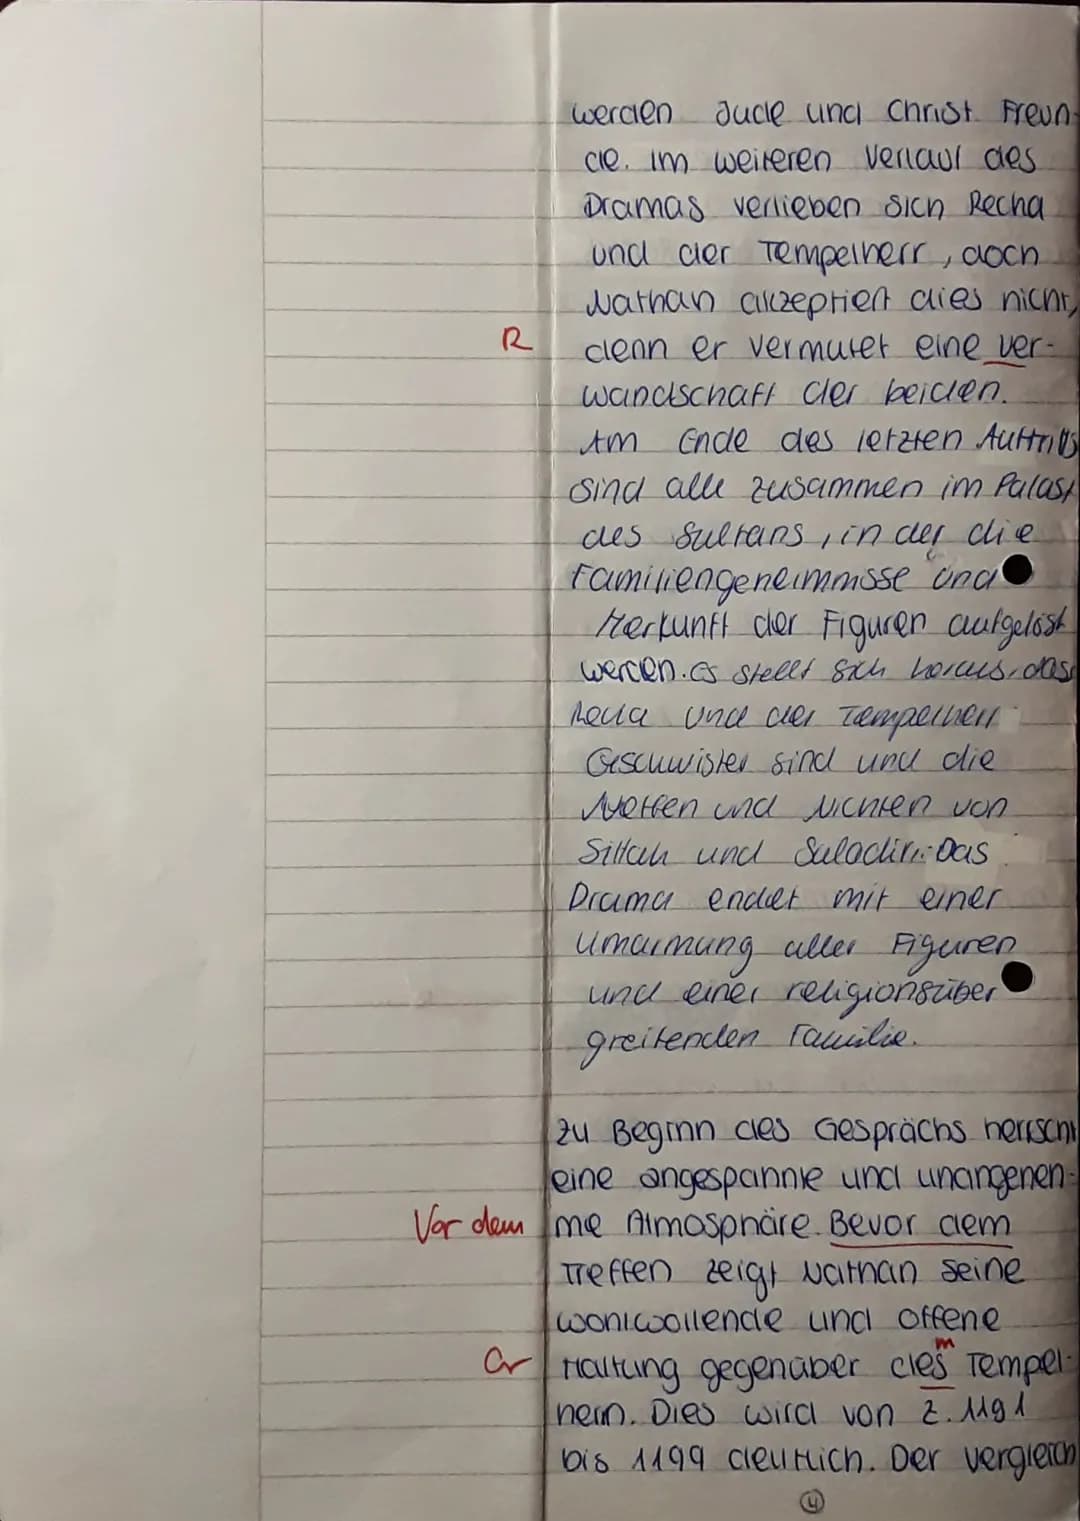 werden Jude und Christ Freun-
de. Im weiteren Verlauf des
Dramas verlieben sich Recha
und der Tempelherr, doch
Nathan akzeptiert dies nicht,
R denn er vermutet eine Ver-
wandschaft der beiden.
Am Ende des letzten Auftritts
sind alle zusammen im Palast
des Sultans, in der die
Familiengeheimnisse und
Herkunft der Figuren aufgelöst
werden. Es stellt sich heraus, dass
Recha und der Tempelherr
Geschwister sind und die
Neffen und Nichten von
Sittah und Saladin. Das
Drama endet mit einer
Umarmung aller Figuren
und einer religionsüber
greifenden Familie.
Zu Beginn des Gesprächs herrscht
eine angespannte und unangeneh-
Vor dem me Atmosphäre. Bevor dem
Treffen zeigt Nathan seine
wohlwollende und offene
Gr Haltung gegenüber des m Tempel-
herrn. Dies wird von Z. 1191
bis 1199 deutlich. Der Vergleich
4